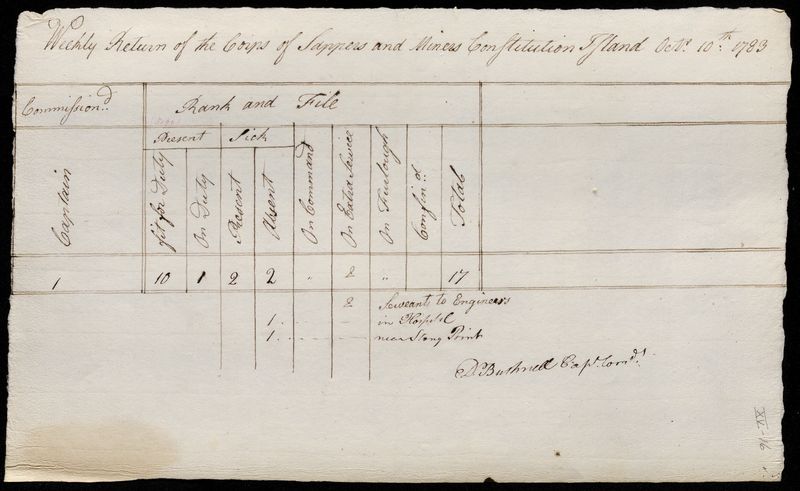 Weekly Return of the Corps of Sappers and Miners Constitution Island Octr. 10th. 1783
Commissiond. Rank and File
Present Sick
Captain fit for Duty On Duty Present Absent On Command On Extra Service On Furlough Confind. Total
1 10 1 2 2 " 2 " 17
2 Serveants to Engineers
1 in Hospital
1 near Stony Point
D. Bushnell Capt. Comdt.
XV-16